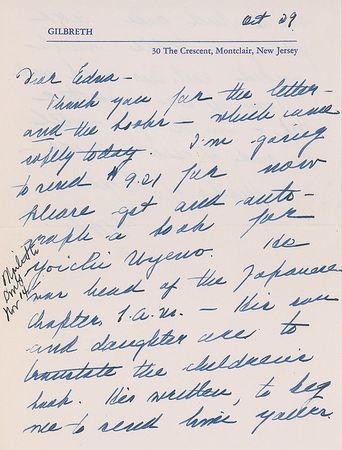 Oct 29
GILBRETH
30 The Crescent, Montclair, New Jersey
Dear Edna –
Thank you for the letter –
and the books – which came
safely today. I'm going
to send $9.21 for now
Please get and auto-
graph a book for
Yoichi Uyeno. He
was head of the Japanese
chapter, S.A.M. – His son
and daughter are to
translate the children's
book. He's written, to beg
me to send him yours.
only
Nov 14